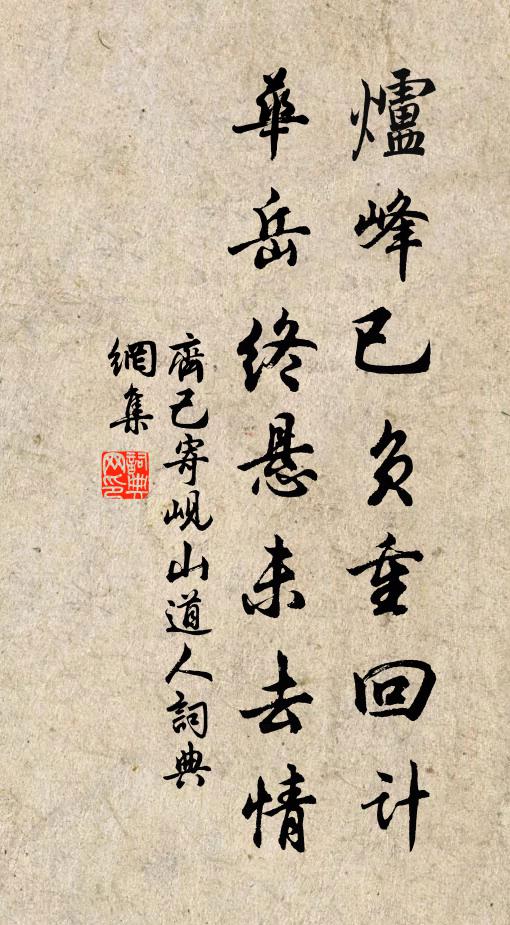 爐峰已負重回計
華岳終悬未去情
齊己寄峴山道人詞典
網集
詞典
网印